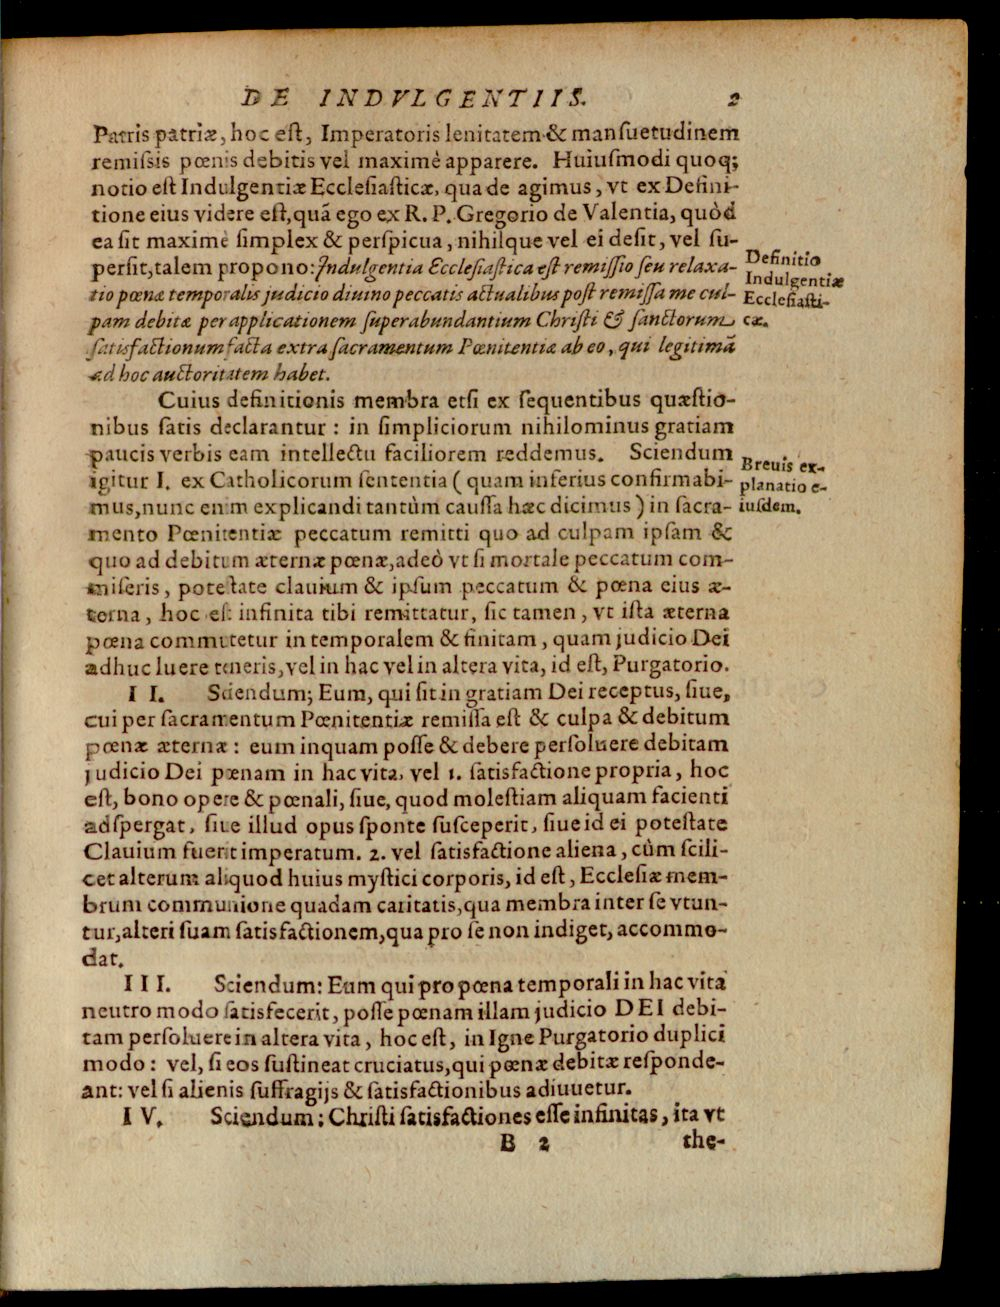 DE INDVLGENTIIS. 2
Patris patriæ, hoc eſt, Imperatoris lenitatem & manſuetudinem
remiſsis pœnis debitis vel maximè apparere. Huiuſmodi quoq;
notio eſt Indulgentiæ Eccleſiaſticæ, qua de agimus, vt ex Defini-
tione eius videre eſt, quã ego ex R. P. Gregorio de Valentia, quòd
ea ſit maximè ſimplex & perſpicua, nihilque vel ei deſit, vel ſu-
perſit, talem propono: Indulgentia Eccleſiaſtica eſt remiſſio ſeu relaxa-
tio pœnæ temporalis judicio diuino peccatis actualibus poſt remiſſam e cul-
pam debitæ per applicationem ſuperabundantium Chriſti & ſanctorum
ſatisfactionum facta extra ſacramentum Pœnitentiæ ab eo, qui legitimã
ad hoc auctoritatem habet.
Definitio
Indulgentiæ
Eccleſiaſti-
cæ.
Cuius definitionis membra etſi ex ſequentibus quæſtio-
nibus ſatis declarantur: in ſimpliciorum nihilominus gratiam
paucis verbis eam intellectu faciliorem reddemus. Sciendum
igitur I. ex Catholicorum ſententia (quam inferius confirmabi-
mus, nunc enim explicandi tantùm cauſſa hæc dicimus) in ſacra-
mento Pœnitentiæ peccatum remitti quo ad culpam ipſam &
quo ad debitum æternæ pœnæ, adeò vt ſi mortale peccatum com-
miſeris, poteſtate clauium & ipſum peccatum & pœna eius æ-
terna, hoc eſt infinita tibi remittatur, ſic tamen, vt iſta æterna
pœna commutetur in temporalem & finitam, quam judicio Dei
adhuc luere teneris, vel in hac vel in altera vita, id eſt, Purgatorio.
Breuis ex-
planatio e-
iuſdem.
I I. Sciendum; Eum, qui ſit in gratiam Dei receptus, ſiue,
cui per ſacramentum Pœnitentiæ remiſſa eſt & culpa & debitum
pœnæ æternæ: eum inquam poſſe & debere perſoluere debitam
judicio Dei pœnam in hac vita, vel 1. ſatisfactione propria, hoc
eſt, bono opere & pœnali, ſiue, quod moleſtiam aliquam facienti
adſpergat, ſiue illud opus ſponte ſuſceperit, ſiue id ei poteſtate
Clauium fuerit imperatum. 2. vel ſatisfactione aliena, cùm ſcili-
cet alterum aliquod huius myſtici corporis, id eſt, Eccleſiæ mem-
brum communione quadam caritatis, qua membra inter ſe vtun-
tur, alteri ſuam ſatisfactionem, qua pro ſe non indiget, accommo-
dat.
I I I. Sciendum: Eum qui pro pœna temporali in hac vita
neutro modo ſatisfecerit, poſſe pœnam illam judicio DEI debi-
tam perſoluere in altera vita, hoc eſt, in Igne Purgatorio duplici
modo: vel, ſi eos ſuſtineat cruciatus, qui pœnæ debitæ reſponde-
ant: vel ſi alienis ſuffragijs & ſatisfactionibus adiuuetur.
I V. Sciendum; Chriſti ſatisfactiones eſſe infinitas, ita vt
B 2 the-